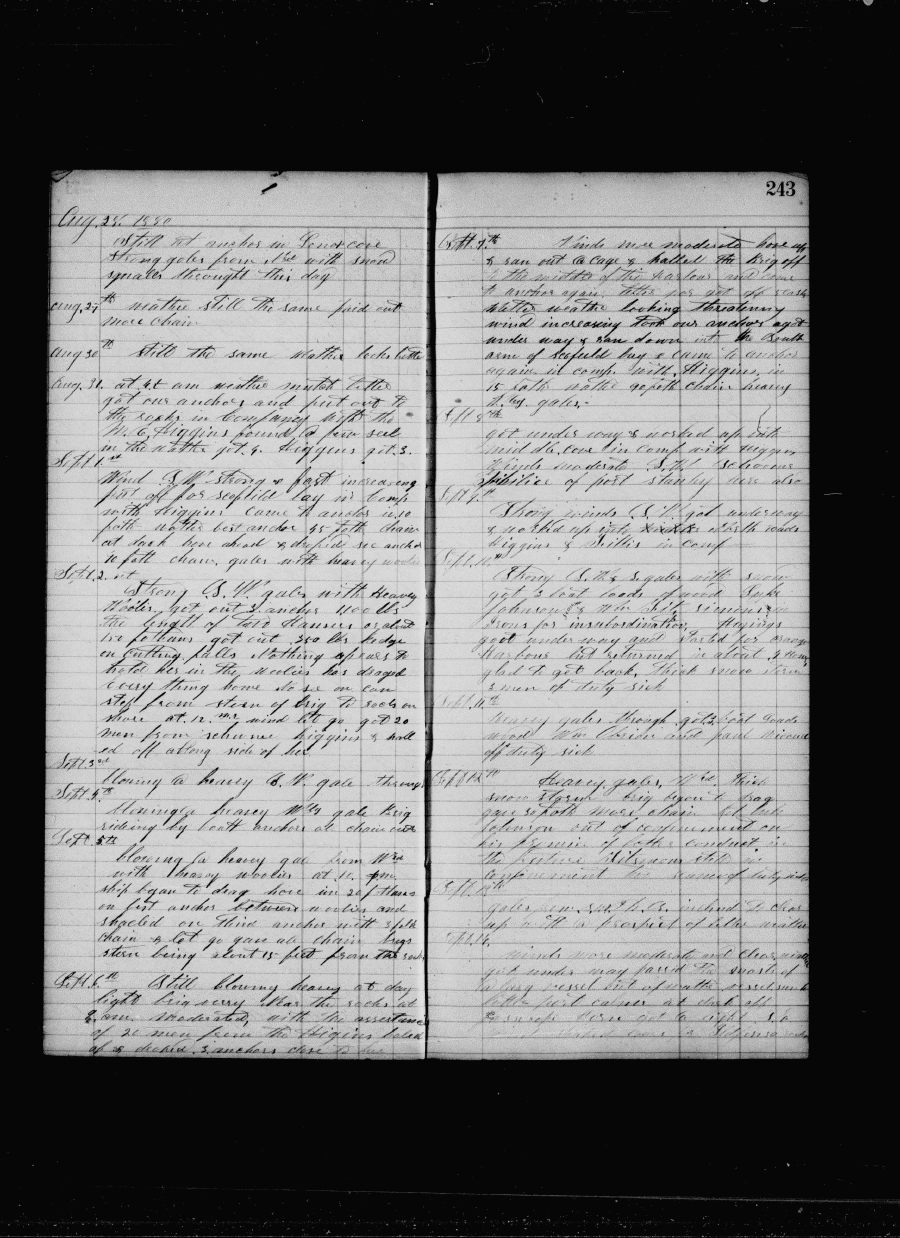 243
Aug. 28. 1880
Still at anchor in cove
strong gales from with snow
squalls throught this day
Aug. 29th weather still the same paid out
more chain
Aug 30th Still the same weather looks better
Aug. 31. at 4 am weather much better
got our anchors and put out to
the rocks in Company with the
Higgins found a few seal
in the water got 9. Higgins got 3.
Sept 1st
Wind S.W. strong & fast increasing
put off for bay in Comp
with Higgins came to anchor in 10
fath watter best anchor 45 fath chain
at dark hove ahead & droped sec anchor
10 fath chain. gales with heavy woolies
Sept. 2.
Strong S. W. gales with Heavey
Woolies got out 3 anchor 1100 lbs
the length of two Hausers or about
150 fathoms got out 350 lbs kedge
on cutting falls Nothing apears to
hold her in the woolies has draged
every thing home No se on can
step from stern of brig to rocks on
shore at 12. wind let go got 20
men from schuner Higgins & hall
ed off along side of her
Sept 3rd
blowing a heavy S. W. gale through
Sept 4th
blowing a heavey gale Brig
rideing by both anchors all chain out
Sept 5th
blowing a heavy gale from
with heavy woolies at 10. pm
ship began to drag hove in 20 fthams
on first anchor between woolies and
shacled on third anchor with 3 fath
chain & let go gave all chain brigs
stern being about 15 feet from the rocks
Sept. 6th Still blowing heavey at day
light brig verry near the rocks at
8 am moderated, with the assistance
of 20 men from the Higgins
up & droped 3 anchors close to
Sept. 7th Winds more moderate hove up
& ran out a cage & halled the brig off
to the middle of the harbour and came
to anchor again
watter weather looking threatening
wind increasing took our anchors again got
under way & ran down into the South
arm of bay & came to anchor
again in comp. with Higgins in
15 fath watter 90 foth chain heavey
gales.
Sept 8th
got under way & worked up into
middle cove in comp with Higgins
Winds moderate S.W. schooner
of port stanley here also
Sept 9th
Strong winds S.W. got underway
& worked up into north roads
Higgins & in comp
Sept. 10th
Strong S.W. & S. gales with snow
got 2 boat loads of wood
Johnson & Wm
irons for insubordination Higgins
got under way and started for orange
harbour but returned in about 4 hours
glad to get back. Thick snow storm
3 men of duty sick
Sept. 11th
heavey gales through got 2 boat loads
wood Wm Obrion and paul
off duty sick
Sept 12th Heavey gales, Thick
snow storm brig began to drag
gave 30 foth more chain let
Johnson out of confinement on
his promise of better conduct in
the future still in
confinement
Sept. 13th
gales from S.W. inclined to clear
up a prospect of better weather
Sept. 14.
winds more moderate and clear
got under way passed the masts of
a large vessel out of watter vessel sunk
calmer at dark off
got to light